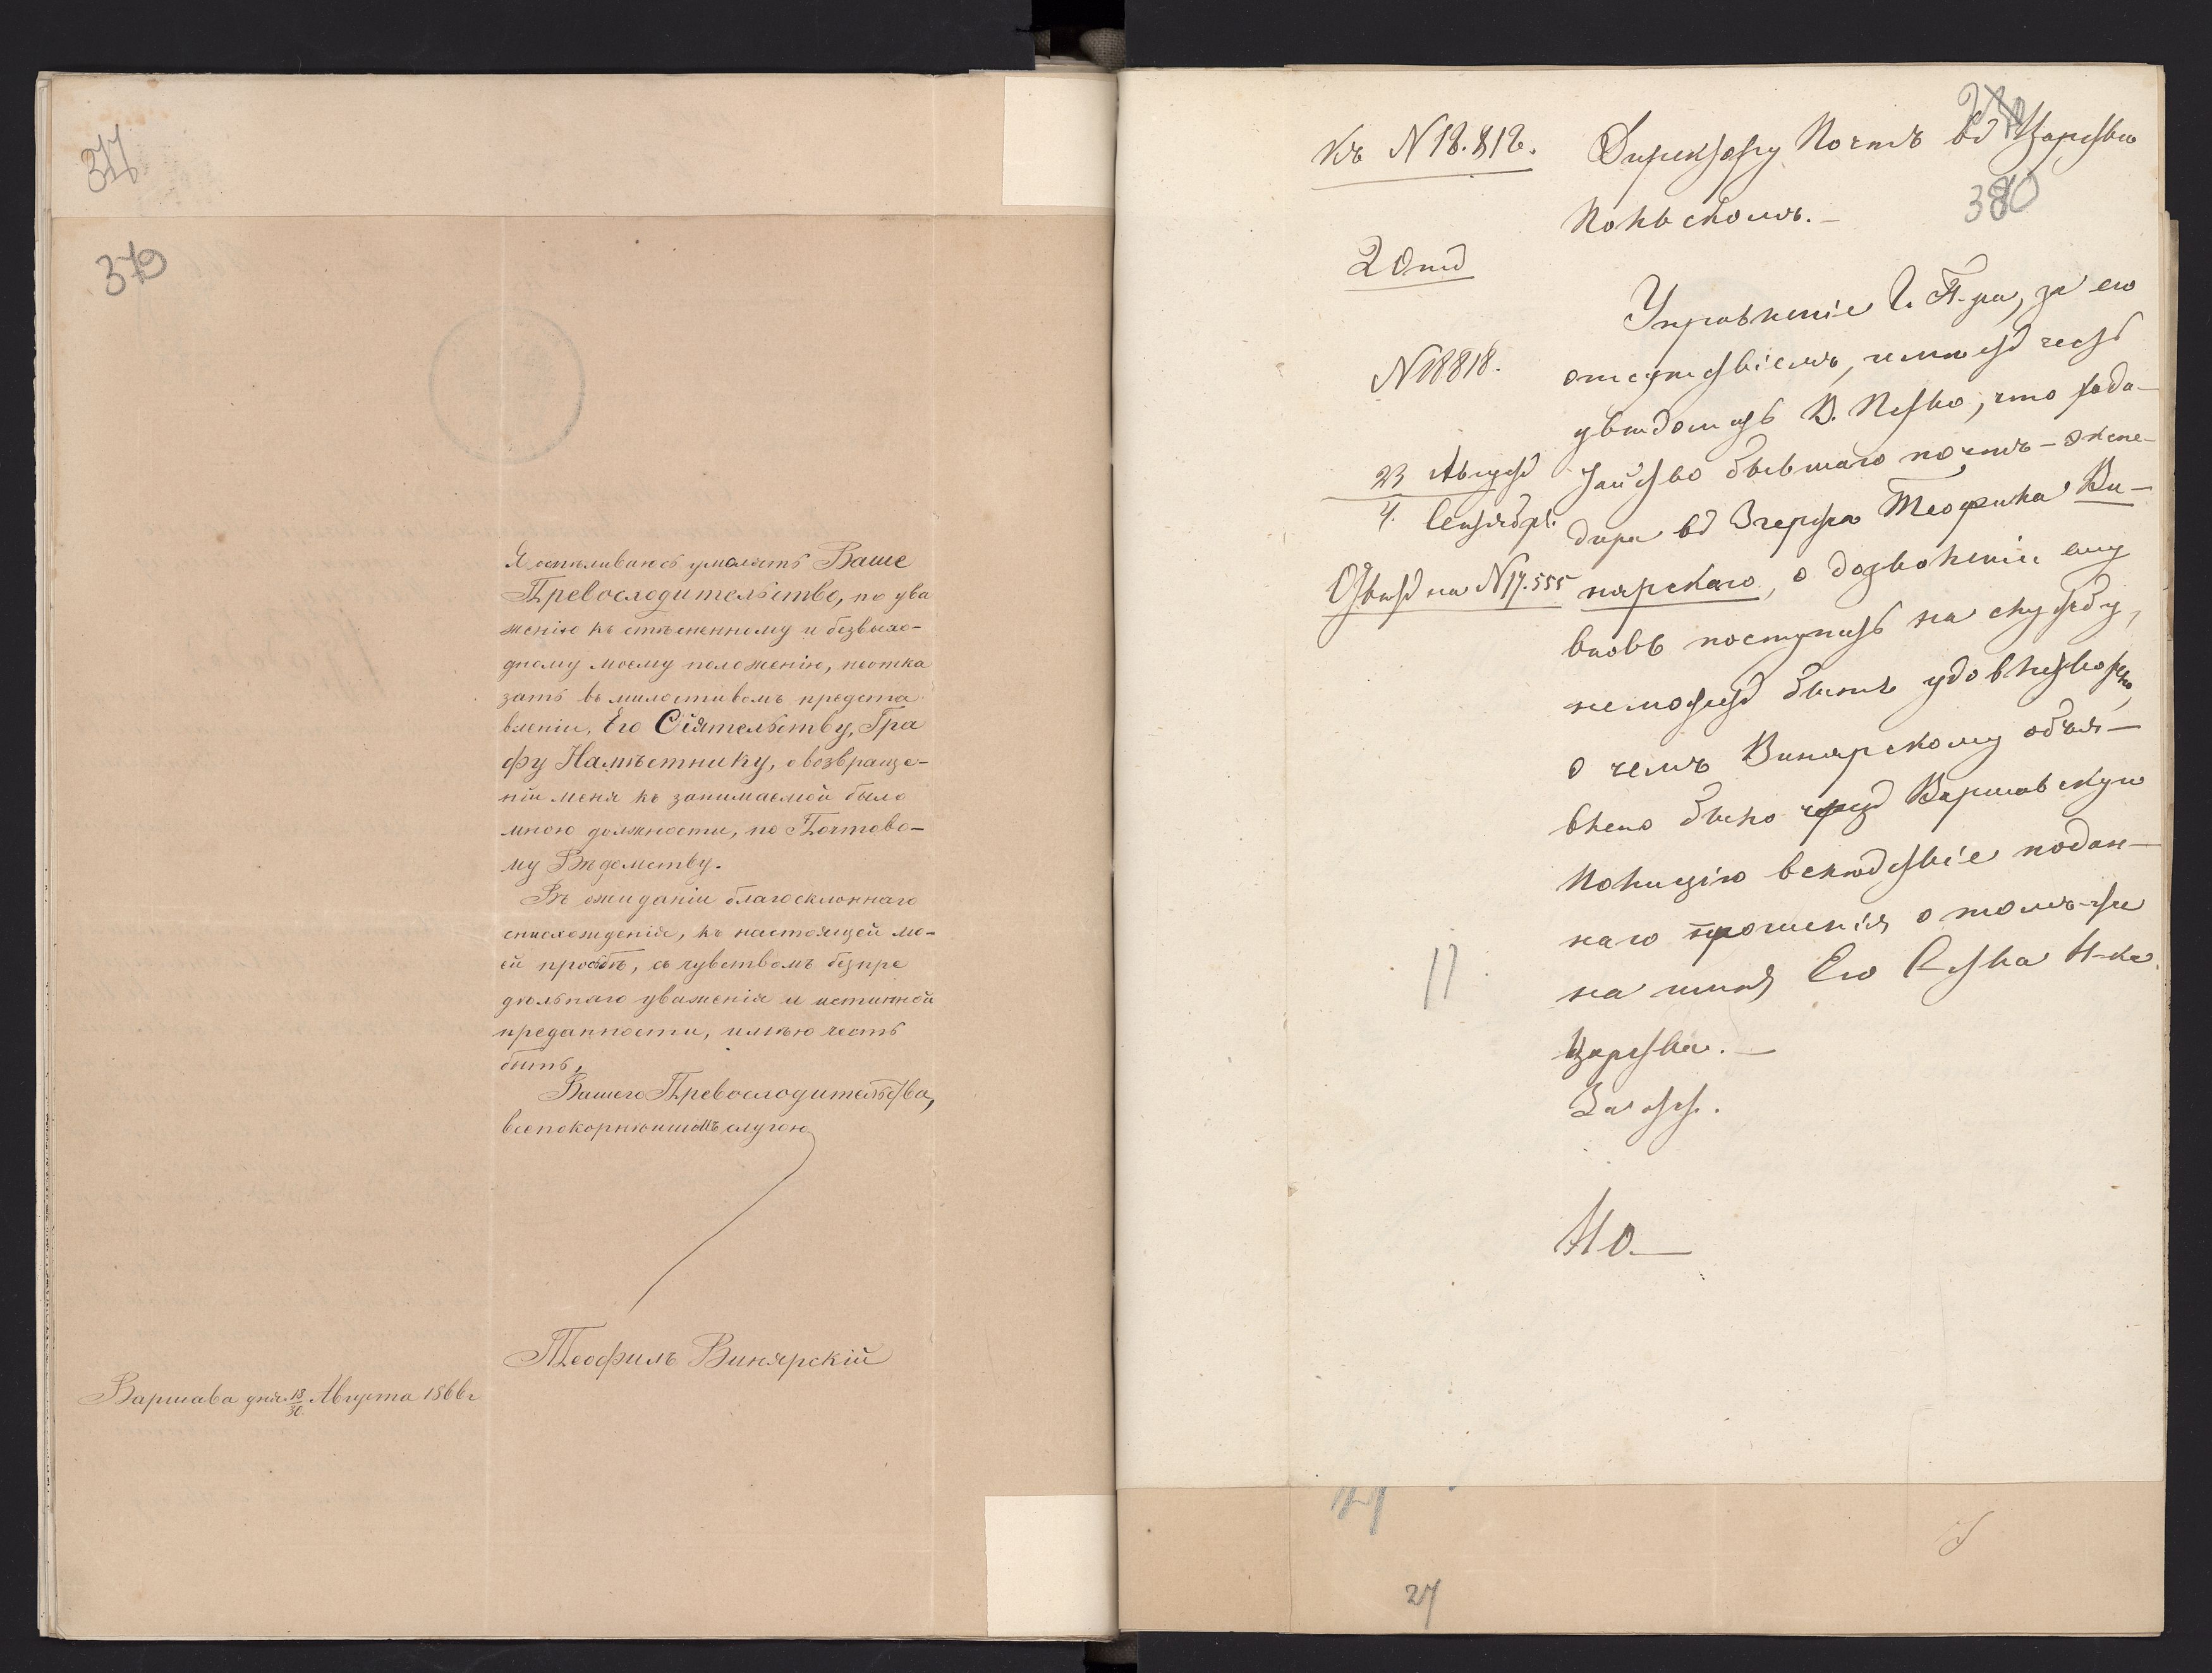 377
379
Я осмѣливаюсь умолять Ваше
Превосходительство, по ува
женію къ стѣсненному и безвыхо-
дному моему положенію, неотка
зать въ милостивомъ предста
вленіи, Его Сіятельству, Гра
фу Намѣстнику, о возвраще-
ніи меня къ занимаемой было
мною должности, по Почтово-
му Вѣдомству.
Въ ожиданіи благосклоннаго
снисхожденія, къ настоящей мо-
ей просьбѣ, съ чувствомъ безпре
дѣльнаго уваженія и истинной
преданности, имѣю честь
быть,
Вашего Превосходительства,
всепокорнѣйшимъ слугою
Теофиль Винярскій
Варшава дня 18/30 Августа 1866 г
380
Къ N 18.818.
Директору Почтъ въ Царствѣ
Польскомъ.-
2 Отд
N 18818.
23 Августа
4. Сентября.
Отвѣтъ на N 17.555
Управленіе Г. П-ра, за его
отсутствіемъ, имѣетъ честь
увѣдомить В. П-ство, что хода-
тайство бывшаго почтъ-экспе-
дира въ Згержѣ Теофила Ви-
нярскаго, о дозволеніи ему
вновь поступить на службу,
неможетъ быть удовлетворено,
о чемъ Винярскому объя-
влено было чрезъ Варшавскую
Полицію вслѣдствіе подан-
наго прошенія о томъ-же
на имя Его С-ства Н-ка
Царства.-
11
27